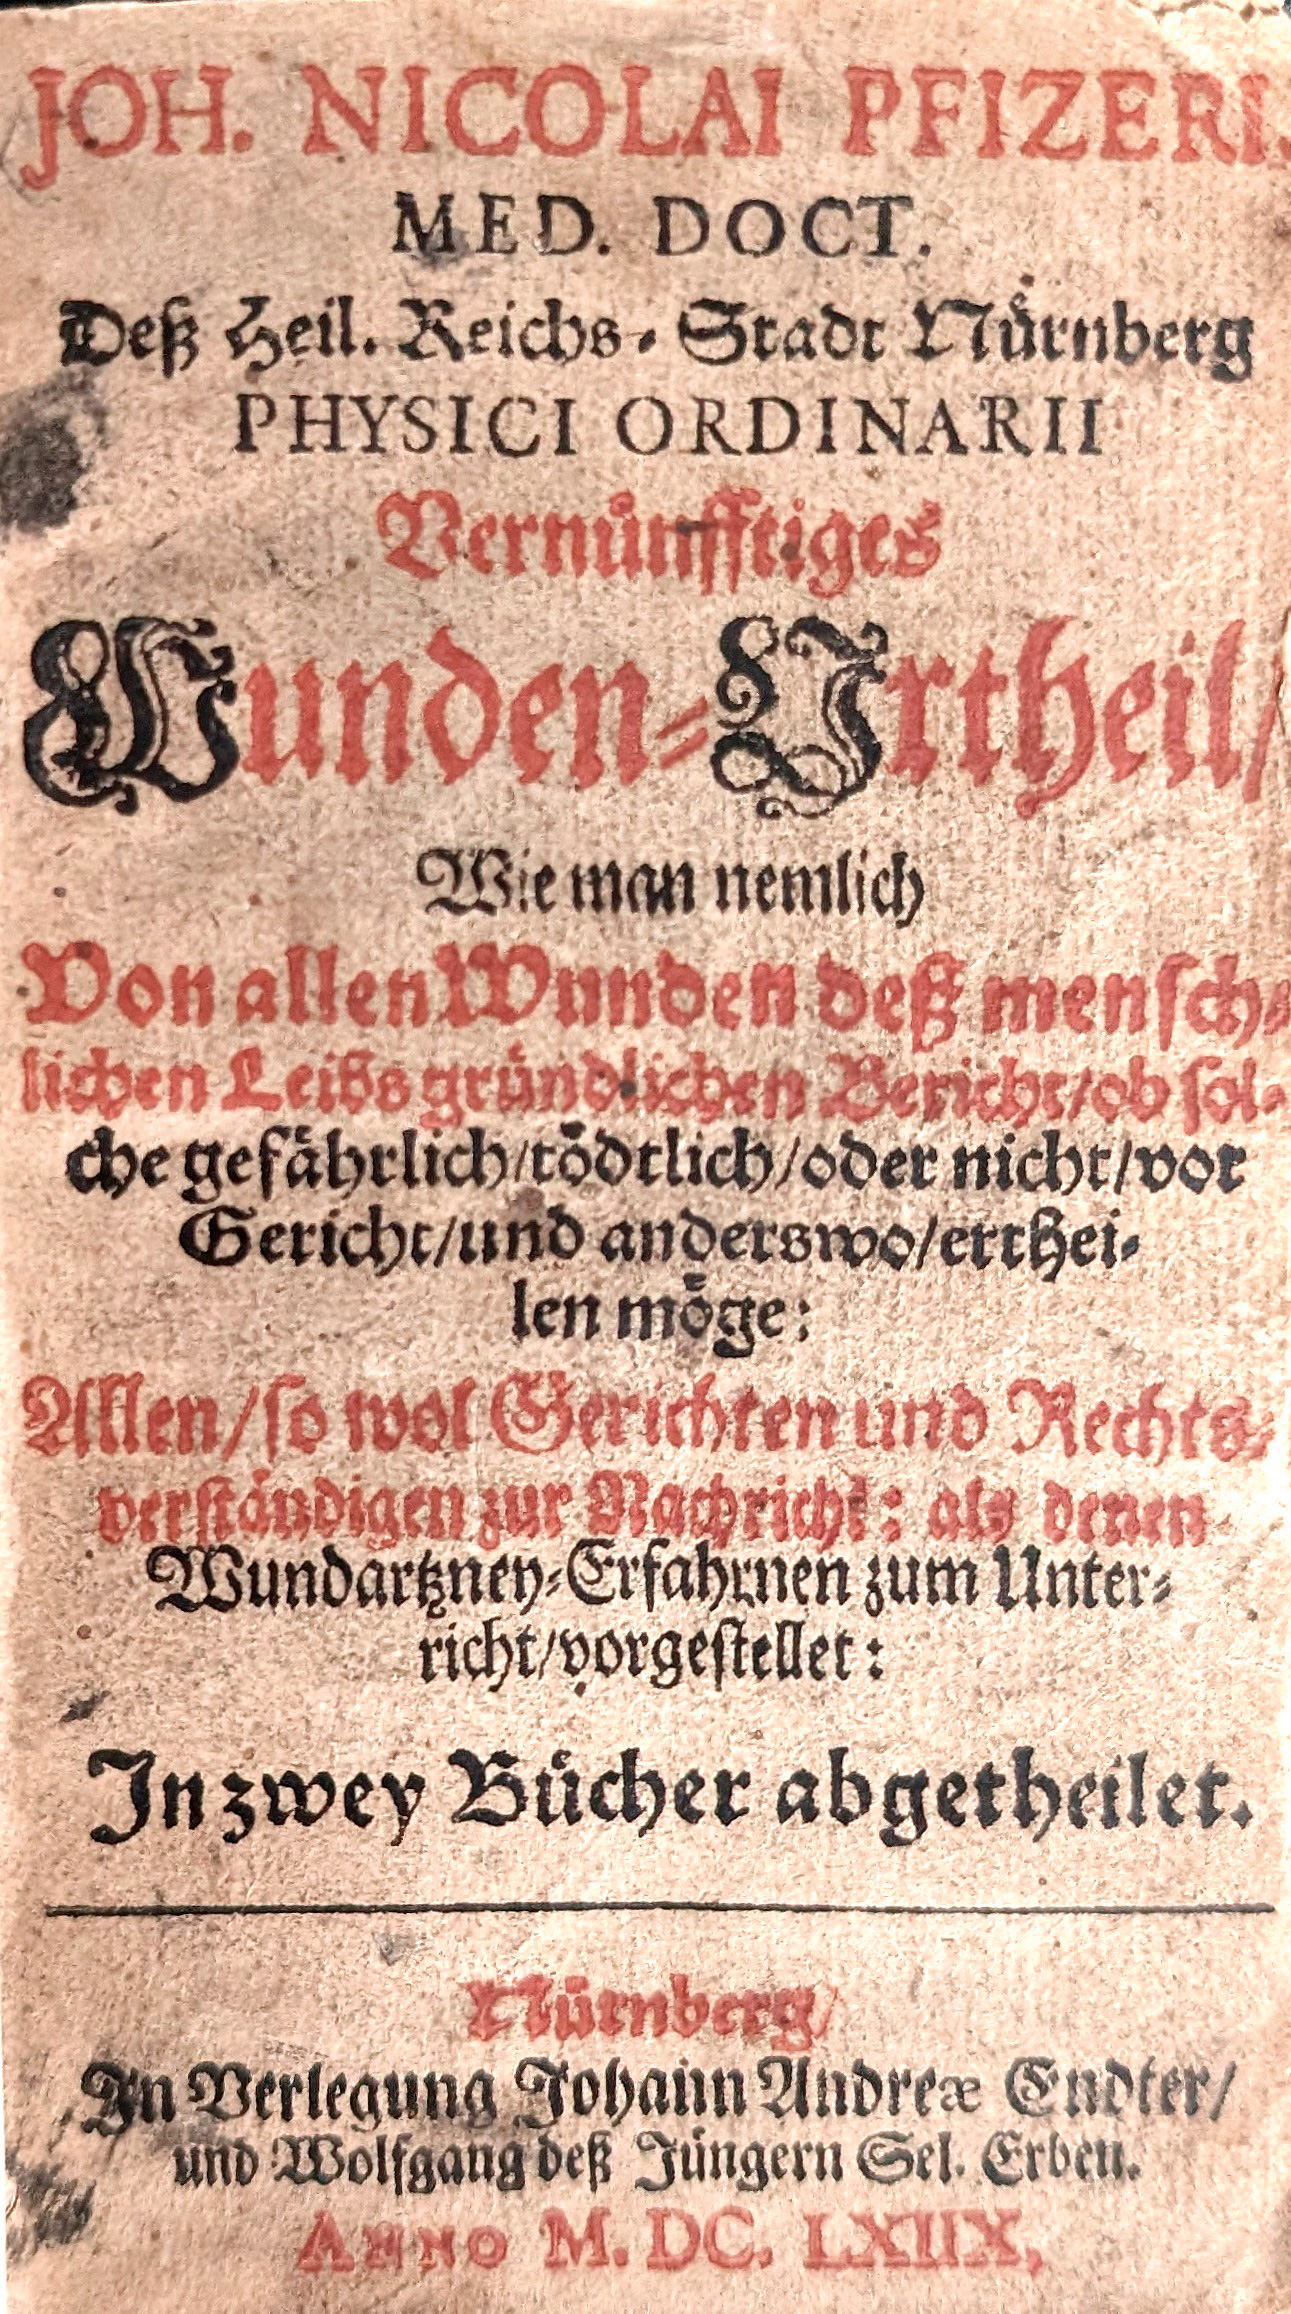 JOH. NICOLAI PFIZERI.
MED. DOCT.
Deß Heil. Reichs-Stadt Nürnberg
PHYSICI ORDINARII
Vernünfftiges
Wunden-Urtheil/
Wie man nemlich
Von allen Wunden deß mensch-
lichen Leibs gründlichen Bericht/ob sol-
che gefährlich/tödtlich/oder nicht/vor
Gericht/und anderswo/erthei-
len möge:
Allen/so wol Gerichten und Rechts-
verständigen zur Nachricht: als denen
Wundartzney-Erfahrnen zum Unter-
richt/vorgestellet:
In zwey Bücher abgetheilet.
Nürnberg/
In Verlegung Johann Andreæ Endter/
und Wolfgang deß Jüngern Sel. Erben.
ANNO M. DC. LXIIX,